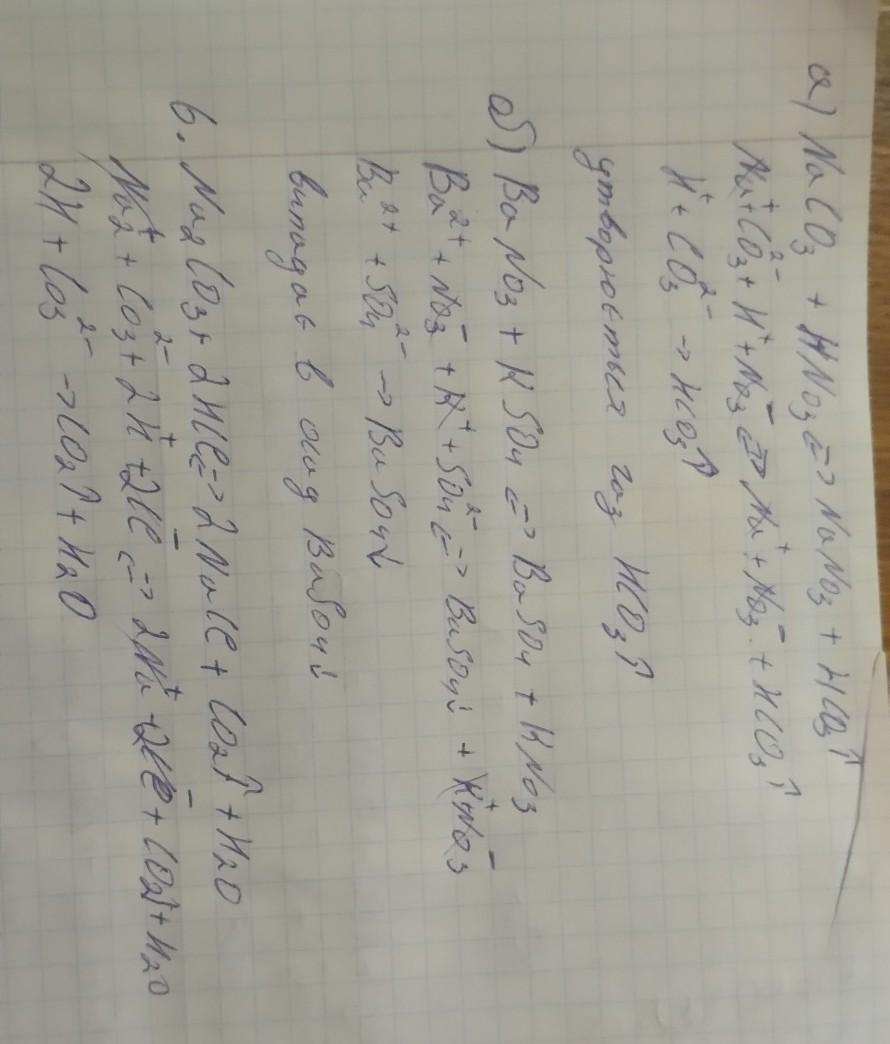 а) NaCO₃ + HNO₃ ⇄ NaNO₃ + HCO₃↑
Na⁺ + CO₃²⁻ + H⁺ + NO₃⁻ ⇄ Na⁺ + NO₃⁻ + HCO₃↑
H⁺ + CO₃²⁻ → HCO₃↑
утворюється газ HCO₃↑
б) BaNO₃ + KSO₄ ⇄ BaSO₄ + KNO₃
Ba²⁺ + NO₃⁻ + K⁺ + SO₄²⁻ ⇄ BaSO₄↓ + K⁺NO₃⁻
Ba²⁺ + SO₄²⁻ → BaSO₄↓
випадає в осад BaSO₄↓
в. Na₂CO₃ + 2HCl ⇄ 2NaCl + CO₂↑ + H₂O
Na₂⁺ + CO₃²⁻ + 2H⁺ + 2Cl⁻ ⇄ 2Na⁺ + 2Cl⁻ + CO₂↑ + H₂O
2H + CO₃²⁻ → CO₂↑ + H₂O